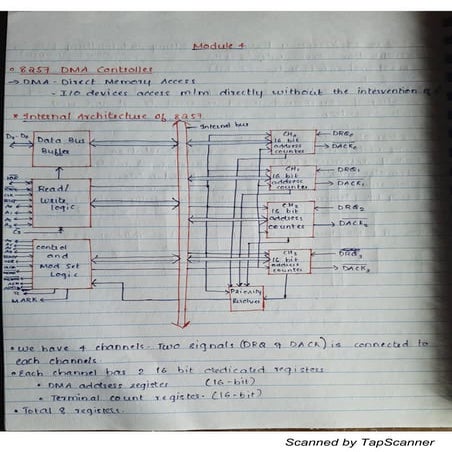 Module 4
• 8257 DMA Controller
→ DMA - Direct Memory Access
- I/O devices access m/m directly without the intervention of
* Internal Architecture of 8257
Internal bus
D0 - D7
Data Bus
Buffer
Read/
Write
logic
CS
control
and
Mod Set
Logic
TC
MARK
CH0
16 bit
address
counter
DRQ0
DACK0
CH1
16 bit
address
counter
DRQ1
DACK1
CH2
16 bit
address
counter
DRQ2
DACK2
CH3
16 bit
address
counter
DRQ3
DACK3
Priority
Resolver
• We have 4 channels. Two signals (DRQ & DACK) is connected to
each channels.
• Each channel has 2 16 bit dedicated registers
• DMA address register (16-bit)
• Terminal count register - (16-bit)
• Total 8 registers.
Scanned by TapScanner